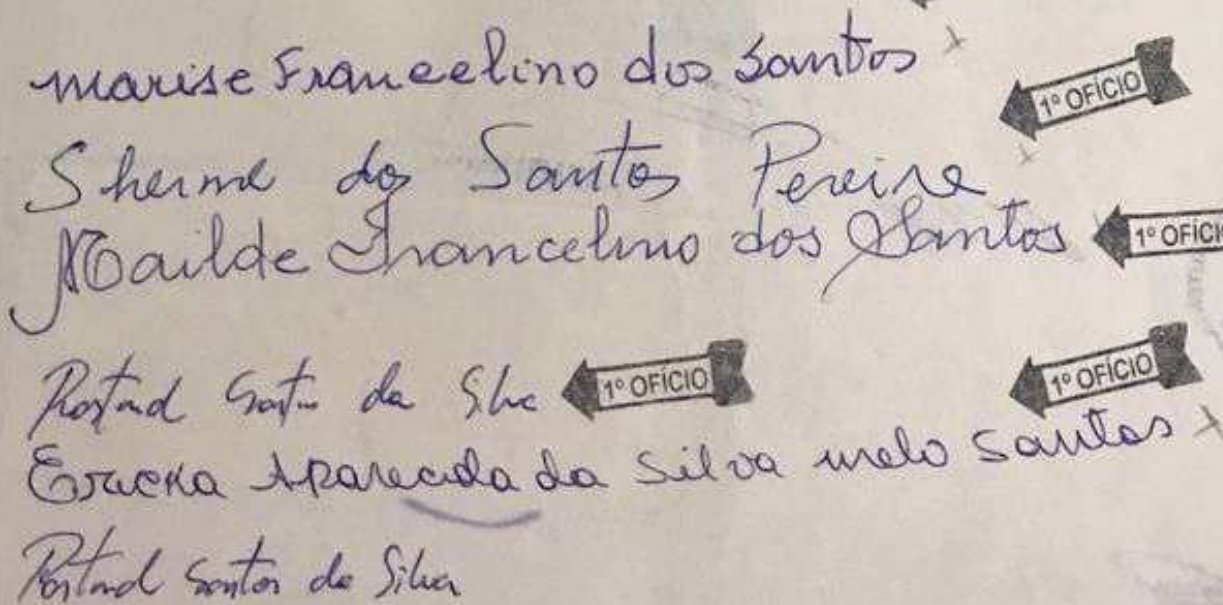 marise Francelino dos Santos
1º OFÍCIO
Sherme dos Santos Pereira
Mailde Francelino dos Santos 1º OFÍCIO
Santos da Silva 1º OFÍCIO
1º OFÍCIO
Ericka Aparecida da Silva melo Santos
Santos da Silva